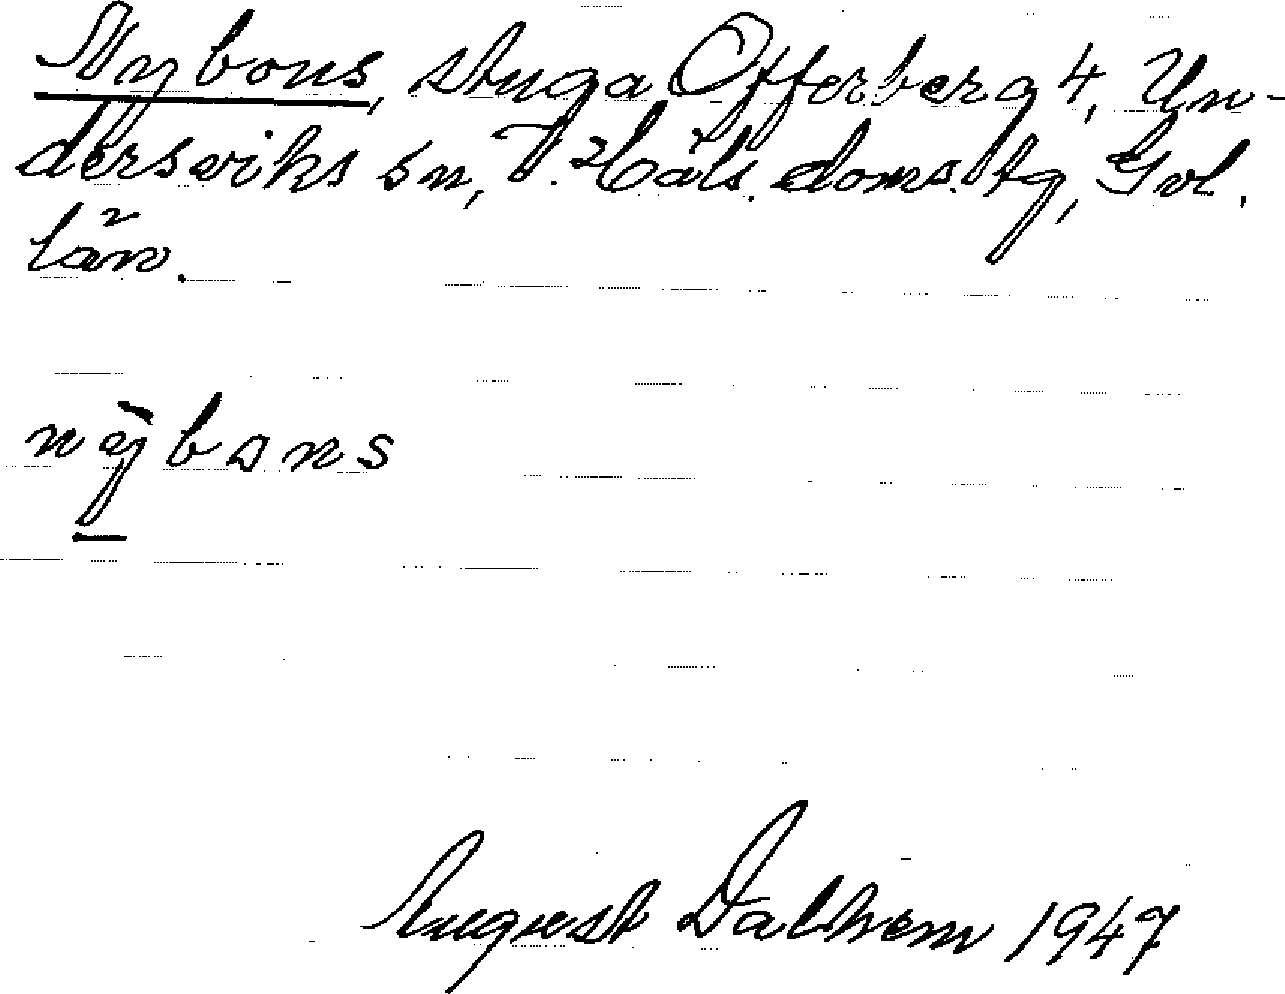 Nybons, stuga Offerberg 4, Un-
dersviks sn, V. Häls. doms. tg, Gvl.
län.
nỳbons
August Dalhem 1947